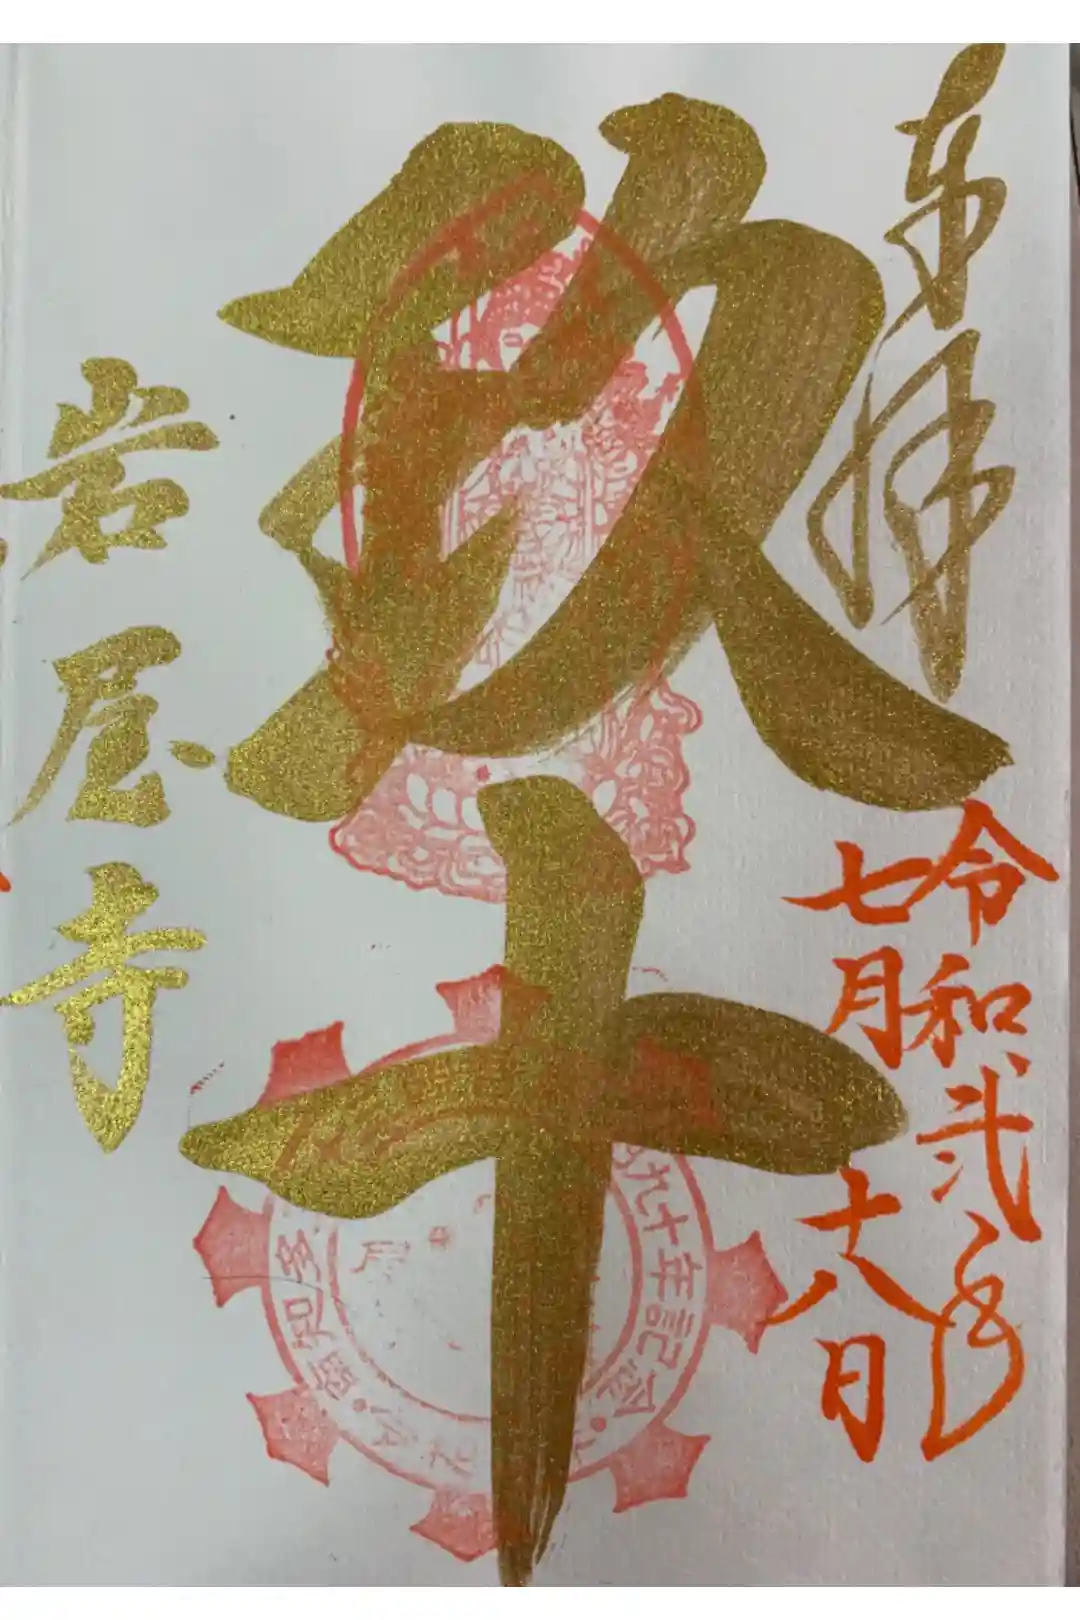 奉拝
令和弐年
七月十八日
玖十
岩屋寺
九十年記念